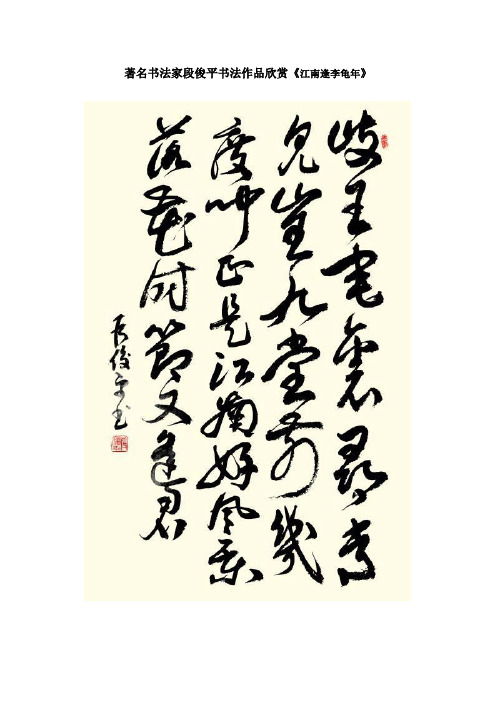 著名书法家段俊平书法作品欣赏《江南逢李龟年》
岐王宅裏尋常
見崔九堂前幾
度聞正是江南好風景
落花時節又逢君
段俊平书